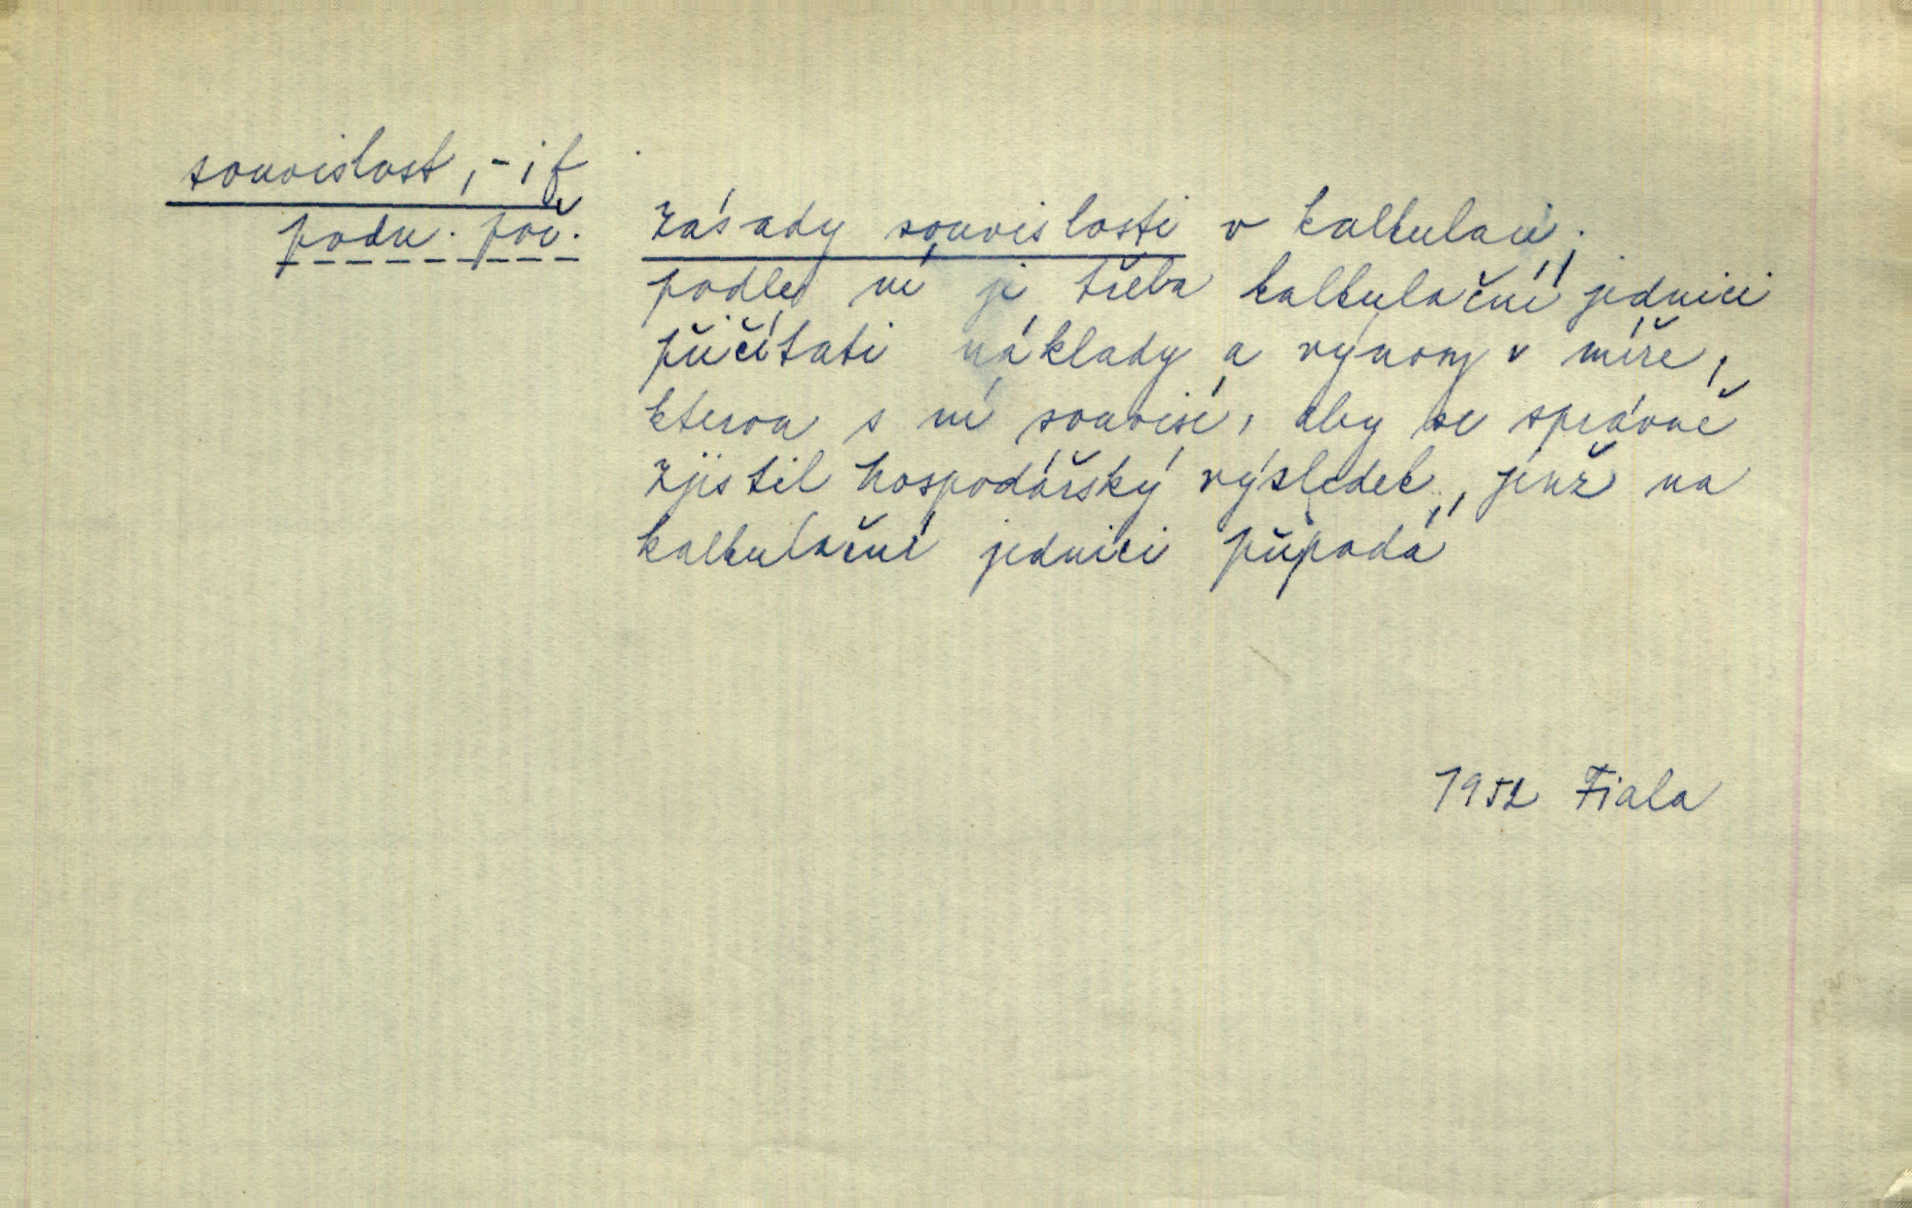 souvislost, -i f
podn. poč.
zásady souvislosti v kalkulaci:
podle ní je třeba kalkulační jednici
přičítati náklady a výnosy v míře,
kterou s ní souvisí, aby se správně
zjistil hospodářský výsledek, jenž na
kalkulační jednici připadá
1952 Fiala